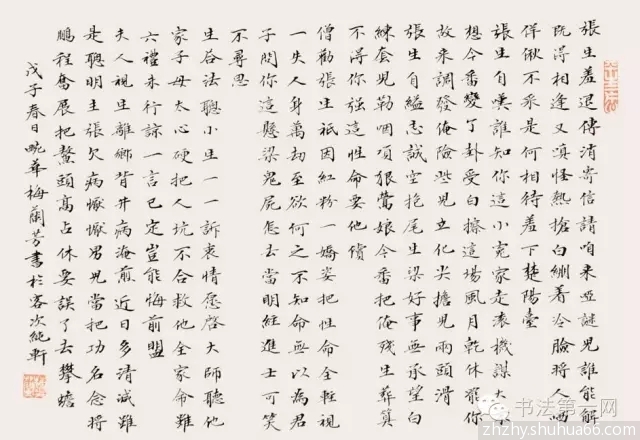 張生羞退傳消寄信請咱来啞謎兒誰能解
既得相逢又嗔怪熱搶白綳着冷臉將人哂
佯偢不采是何相待羞下楚陽臺
張生自嘆誰知你這小寃家走滚機謀大不
想今番變了卦受白撡這場風月乾休罷你
故来調發俺險些兒立化尖擔兒兩頭滑
張生自縊志誠空抱尾生梁好事無承望白
練套兒勒咽項狠鶯娘今番把俺殘生葬算
不得你強這性命要他償
僧勸張生祇因紅粉一嬌姿把性命全輕視
一失人身萬劫至欲何之不知命無以為君
子問你這懸梁鬼屍怎去當明經進士可笑
不尋思
生答法聰小生一一訴衷情愿啓大師聽他
家子母太心硬把人坑不合救他全家命雖
六禮未行諒一言已定豈能悔前盟
夫人視生離鄉背井病淹煎近日多清減雖
是聰明主張欠病懨懨男兒當把功名念將
鵬程奮展把鰲頭高占休要誤了去攀蟾
戊子春日畹華梅蘭芳書於客次純軒
书法第一网
zhzhy.shuhua66.com